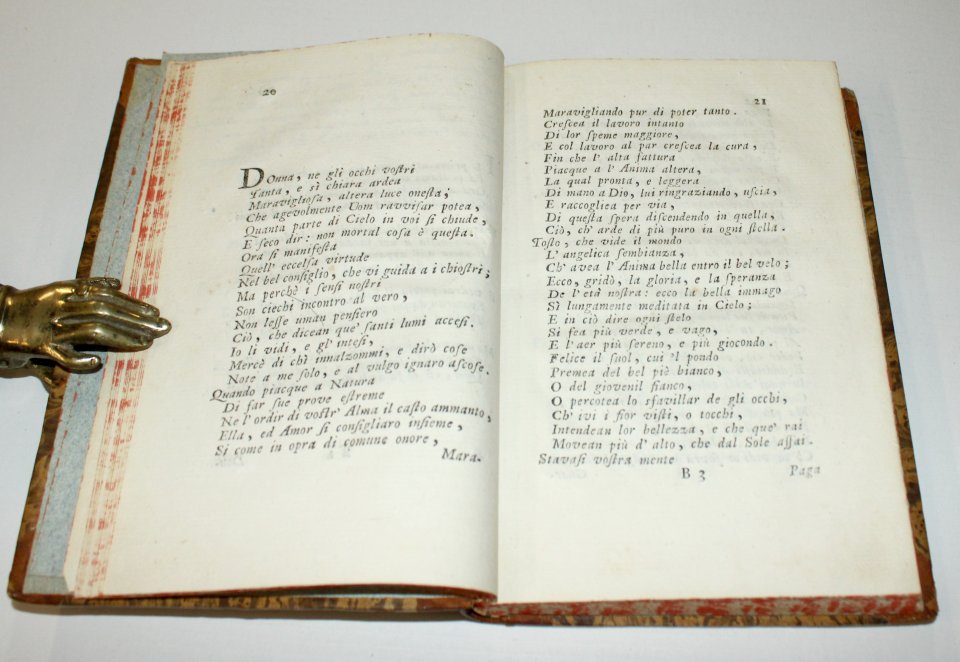 20
Donna, ne gli occhi voſtri
Tanta, e sì chiara ardea
Maraviglioſa, altera luce oneſta;
Che agevolmente Uom ravviſar potea,
Quanta parte di Cielo in voi ſi chiude,
E ſeco dir: non mortal coſa è queſta.
Ora ſi manifeſta
Quell' eccelſa virtude
Nel bel conſiglio, che vi guida a i chioſtri;
Ma perchè i ſenſi noſtri
Son ciechi incontro al vero,
Non leſſe uman penſiero
Ciò, che dicean que' ſanti lumi acceſi.
Io li vidi, e gl' inteſi,
Mercè di chi innalzommi, e dirò coſe
Note a me ſolo, e al vulgo ignaro aſcoſe.
Quando piacque a Natura
Di far ſue prove eſtreme
Ne l' ordir di voſtr' Alma il caſto ammanto,
Ella, ed Amor ſi conſigliaro inſieme,
Sì come in opra di comune onore,
Mara-
21
Maravigliando pur di poter tanto.
Creſcea il lavoro intanto
Di lor ſpeme maggiore,
E col lavoro al par creſcea la cura,
Fin che l' alta fattura
Piacque a l' Anima altera,
La qual pronta, e leggera
Di mano a Dio, lui ringraziando, uſcìa,
E raccogliea per via,
Di queſta ſpera diſcendendo in quella,
Ciò, ch' arde di più puro in ogni ſtella.
Toſto, che vide il mondo
L' angelica ſembianza,
Ch' avea l' Anima bella entro il bel velo;
Ecco, gridò, la gloria, e la ſperanza
De l' età noſtra: ecco la bella immago
Sì lungamente meditata in Cielo;
E in ciò dire ogni ſtelo
Si fea più verde, e vago,
E l' aer più ſereno, e più giocondo.
Felice il ſuol, cui 'l pondo
Premea del bel piè bianco,
O del giovenil fianco,
O percotea lo sfavillar de gli occhi,
Ch' ivi i fior viſti, o tocchi,
Intendean lor bellezza, e che que' rai
Movean più d' alto, che dal Sole aſſai.
Stavaſi voſtra mente
B 3 Paga